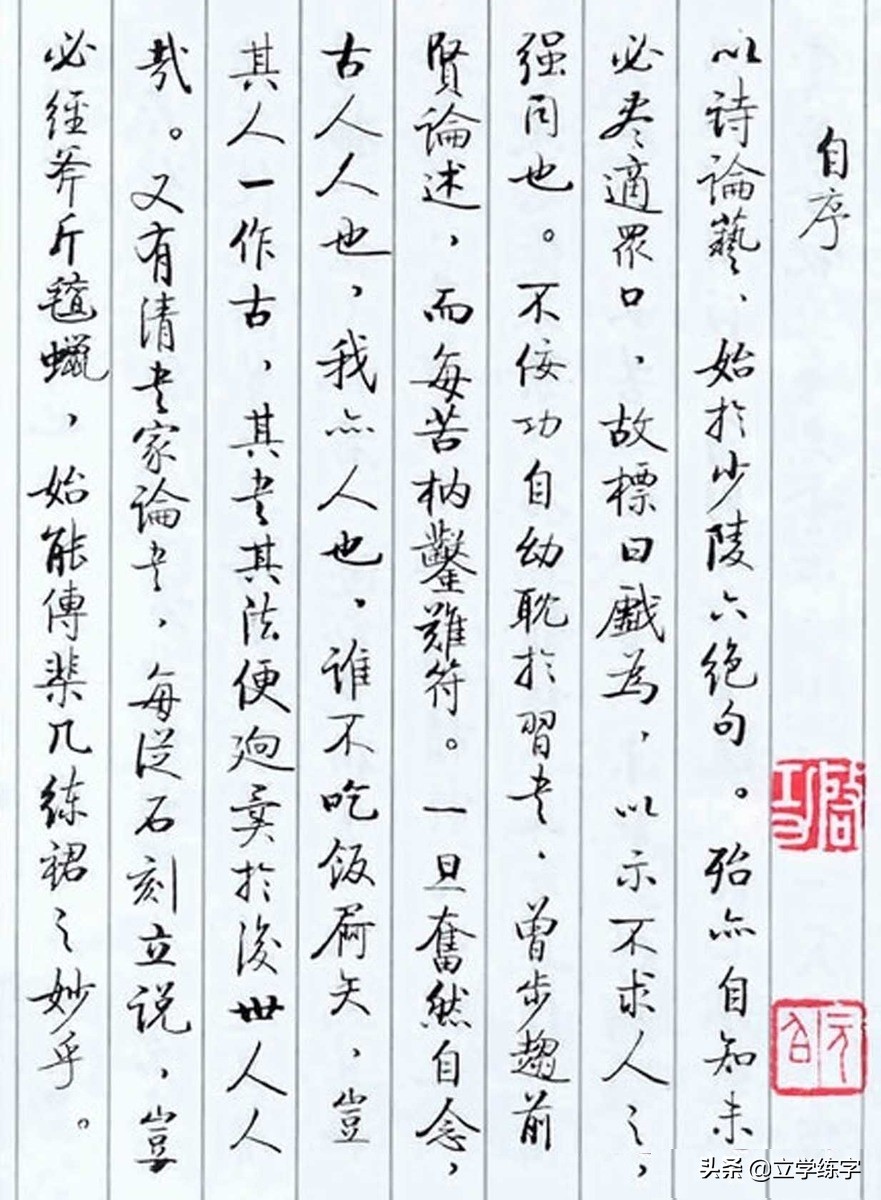 自序
以詩論藝，始於少陵六絕句。殆亦自知未
必尽適眾口，故標曰戲為，以示不求人之，
强同也。不佞功自幼耽於習书，曾步趨前
賢論述，而每苦枘鑿難符。一旦奮然自念，
古人人也，我亦人也，谁不吃饭屙矢，豈
其人一作古，其书其法便迥異於後世人人
哉。又有清书家論书，每从石刻立说，豈
必經斧斤氊蠟，始能傳棐几練裙之妙乎。
啟功
元白
头条 @立学练字